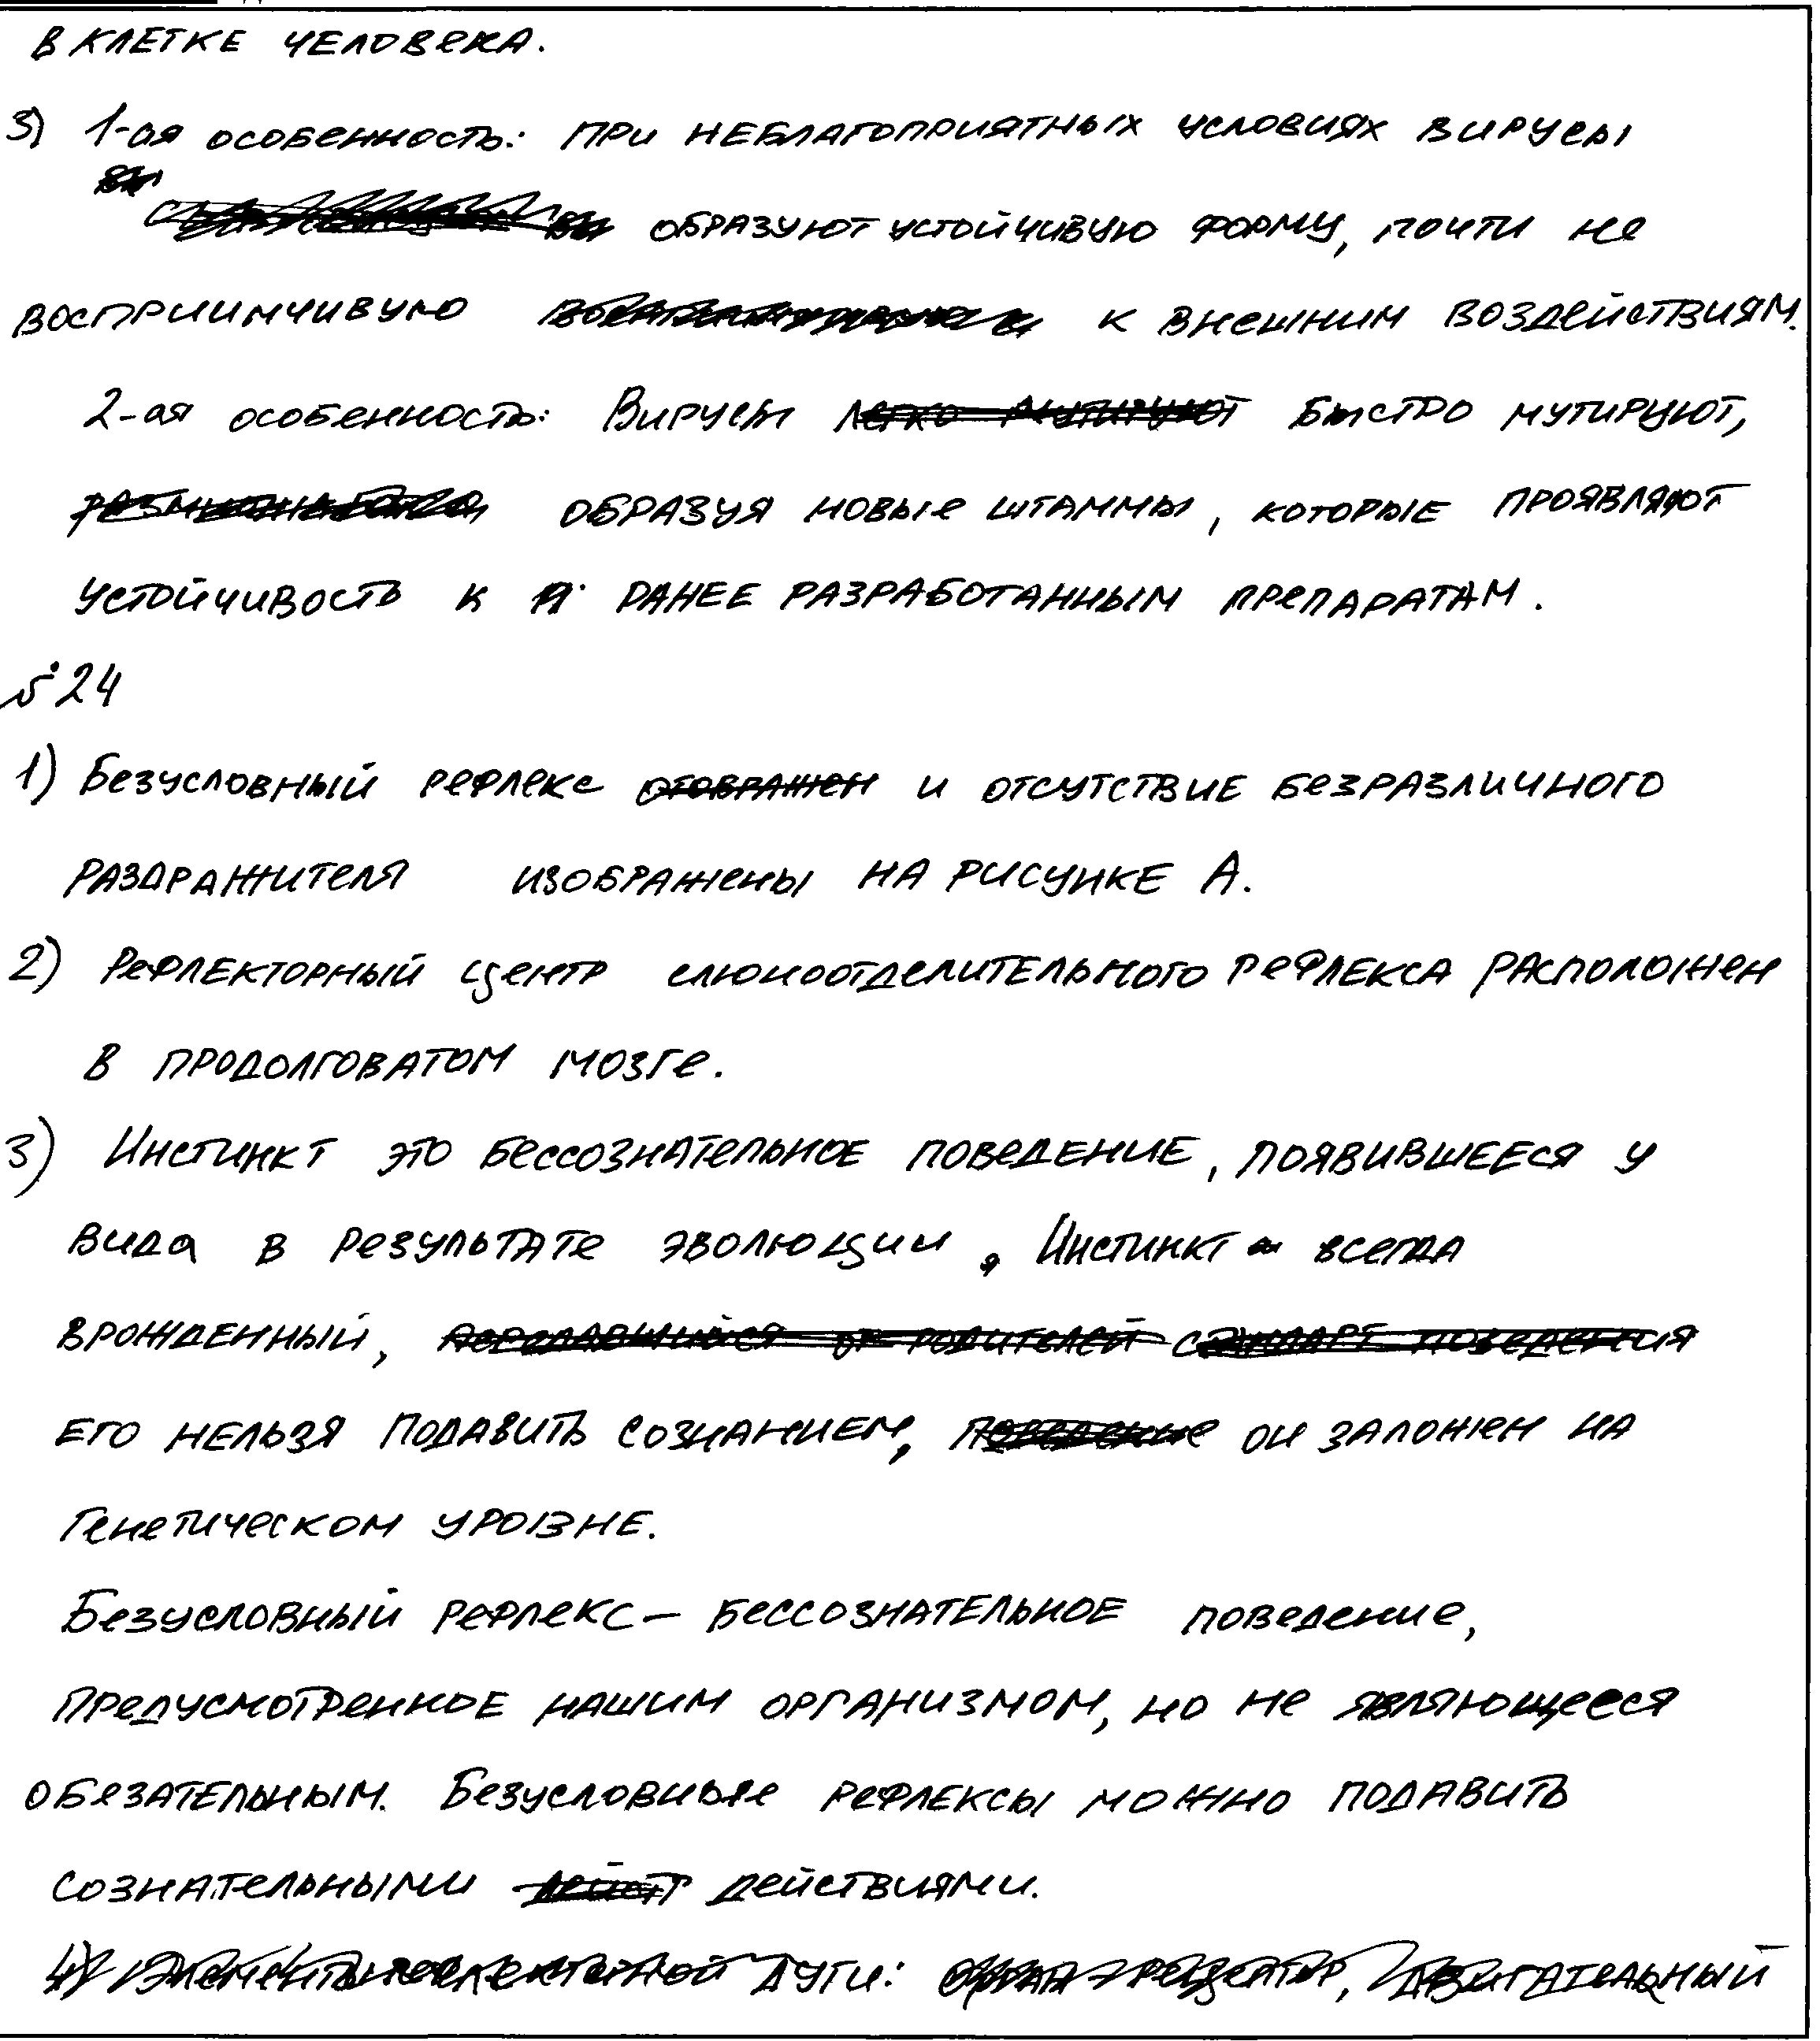 в клетке человека.
3) 1-ая особенность: при неблагоприятных условиях вирусы
образуют устойчивую форму, почти не
восприимчивую к внешним воздействиям.
2-ая особенность: Вирусы легко мутируют быстро мутируют,
размножаются образуя новые штаммы, которые проявляют
устойчивость к п ранее разработанным препаратам.
№24
1) Безусловный рефлекс отображен и отсутствие безразличного
раздражителя изображены на рисунке А.
2) Рефлекторный центр слюноотделительного рефлекса расположен
в продолговатом мозге.
3) Инстинкт это бессознательное поведение, появившееся у
вида в результате эволюции, Инстинкт всегда
врожденный, передавшийся от родителей стандарт поведения
его нельзя подавить сознанием, поведение он заложен на
генетическом уровне.
Безусловный рефлекс – бессознательное поведение,
предусмотренное нашим организмом, но не являющееся
обезательным. Безусловные рефлексы можно подавить
сознательными дейст действиями.
4) Элементы рефлекторной дуги: рецептор, двигательный